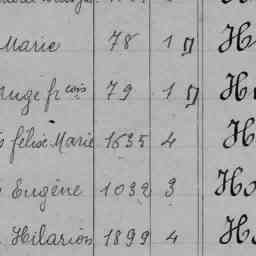 Marie 78 1 H
Ange fcois 79 1 H
félix Marie 1635 4 H
Eugène 1032 3 Ho
Hilarion 1899 4 H